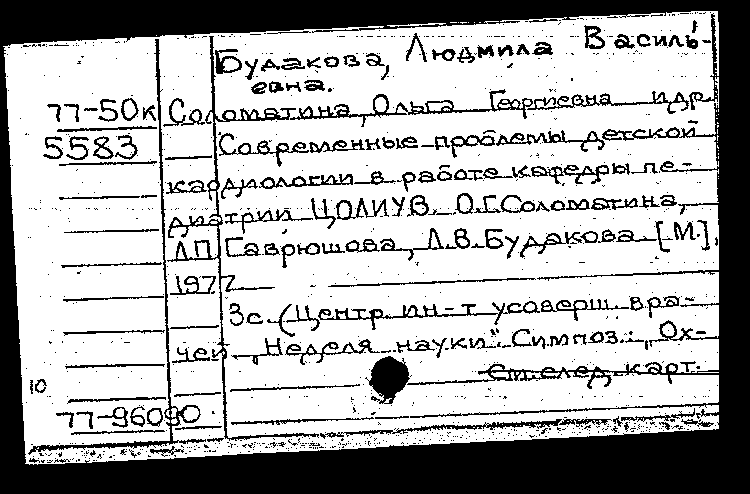 Будакова, Людмила Василь-
евна.
77-50к Соломатина, Ольга Георгиевна и др.
5583 Современные проблемы детской
кардиологии в работе кафедры пе-
диатрии ЦОЛИУВ. О.Г. Соломатина,
Л.П. Гаврюшова, Л.В. Будакова. [М.],
1977
3с. (Центр. ин-т усоверш. вра-
чей. „Неделя науки". Симпоз.: „Ох-
См. след. карт.
10
77-96090